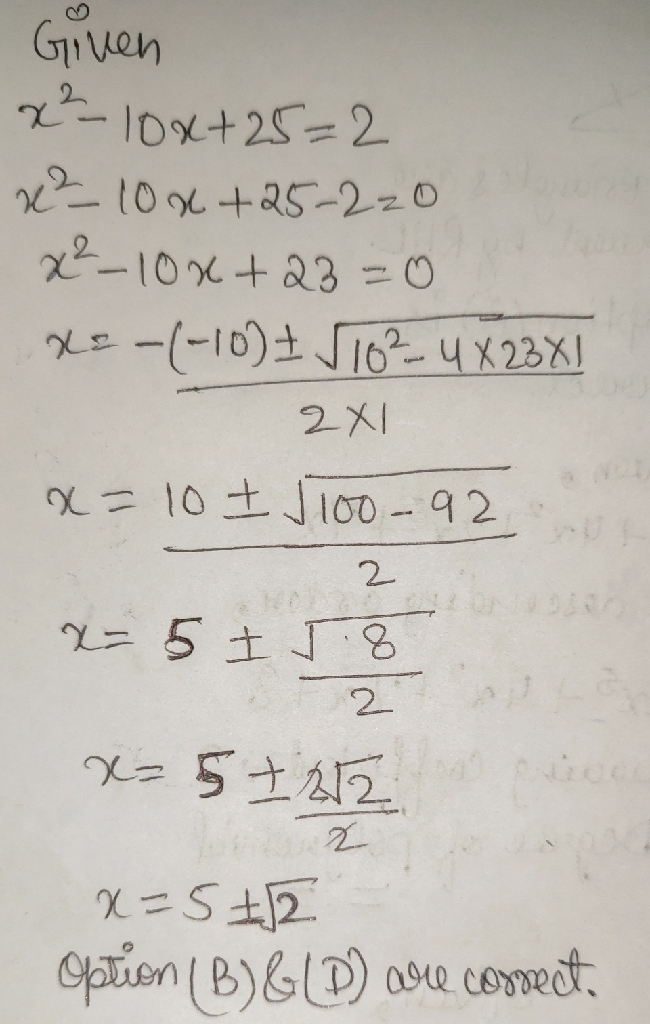 Given
x² - 10x + 25 = 2
x² - 10x + 25 - 2 = 0
x² - 10x + 23 = 0
x = -(-10) ± √10² - 4 × 23 × 1
2 × 1
x = 10 ± √100 - 92
2
x = 5 ± √8
2
x = 5 ± 2√2
2
x = 5 ± √2
Option (B) & (D) are correct.